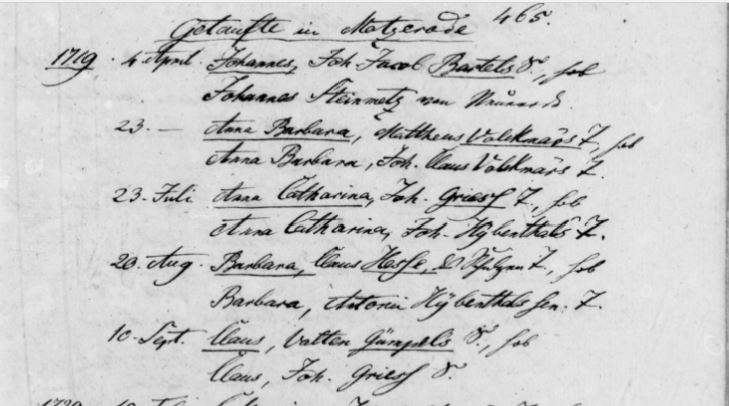 465.
Getaufte in Motzerode
1719. 4 April Johannes, Joh Jacob Bartels S., hob
Johannes Steinmetz von
23. — Anna Barbara, Mattheus Volckmars T., hob
Anna Barbara, Joh. Claus Volckmars T.
23. Juli Anna Catharina, Joh. Griess T., hob
Anna Catharina, Joh. Hÿbenthals T.
20. Aug. Barbara, Claus Hesse, T., hob
Barbara, Antonii Hÿbenthals sen. T.
10. Sept. Claus, Valten Gümpels S., hob
Claus, Joh. Griess S.